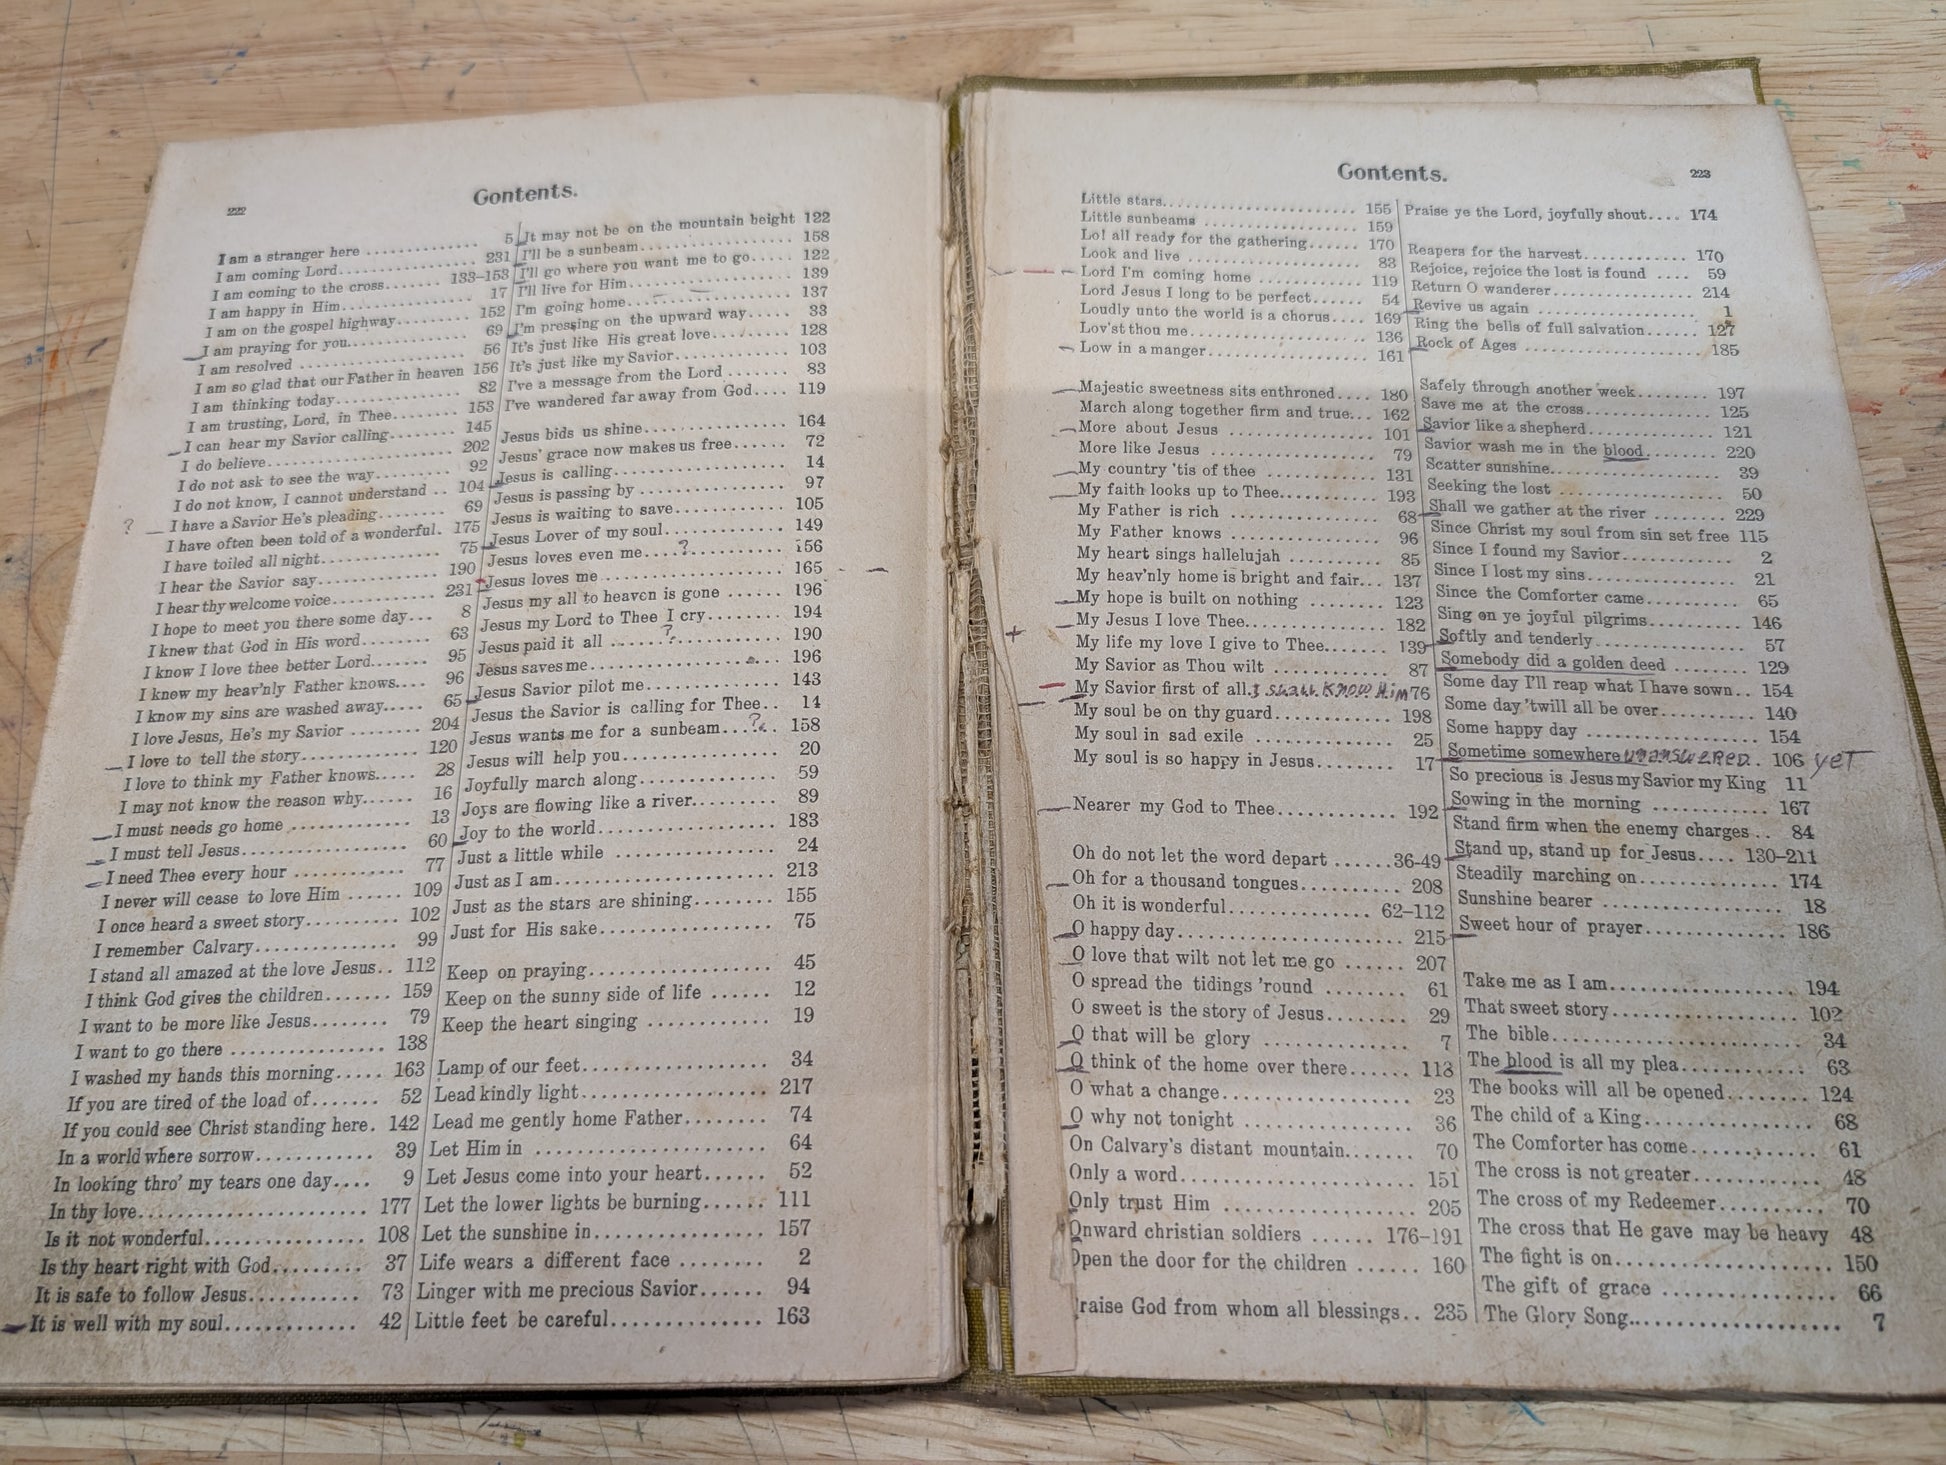 222
Contents.
I am a stranger here ............ 5
I am coming Lord.................. 231
I am coming to the cross....... 133-153
I am happy in Him................ 17
I am on the gospel highway......... 152
I am praying for you............... 69
I am resolved .................... 56
I am so glad that our Father in heaven 156
I am thinking today................ 82
I am trusting, Lord, in Thee........ 153
I can hear my Savior calling........ 145
I do believe....................... 202
I do not ask to see the way......... 92
I do not know, I cannot understand .. 104
? I have a Savior He's pleading........ 69
I have often been told of a wonderful. 175
I have toiled all night............. 75
I hear the Savior say............... 190
I hear thy welcome voice............ 231
I hope to meet you there some day... 8
I knew that God in His word........ 63
I know I love thee better Lord....... 95
I know my heav'nly Father knows.... 96
I know my sins are washed away..... 65
I love Jesus, He's my Savior ........ 204
I love to tell the story............. 120
I love to think my Father knows..... 28
I may not know the reason why...... 16
I must needs go home ............. 13
I must tell Jesus................... 60
I need Thee every hour ............ 77
I never will cease to love Him ...... 109
I once heard a sweet story.......... 102
I remember Calvary............... 99
I stand all amazed at the love Jesus.. 112
I think God gives the children....... 159
I want to be more like Jesus........ 79
I want to go there ................ 138
I washed my hands this morning..... 163
If you are tired of the load of....... 52
If you could see Christ standing here. 142
In a world where sorrow............ 39
In looking thro' my tears one day.... 9
In thy love...................... 177
Is it not wonderful................ 108
Is thy heart right with God......... 37
It is safe to follow Jesus........... 73
It is well with my soul............. 42
It may not be on the mountain height 122
I'll be a sunbeam.................. 158
I'll go where you want me to go..... 122
I'll live for Him................... 139
I'm going home.................... 137
I'm pressing on the upward way..... 33
It's just like His great love......... 128
It's just like my Savior............. 103
I've a message from the Lord ....... 83
I've wandered far away from God.... 119
Jesus bids us shine................ 164
Jesus' grace now makes us free...... 72
Jesus is calling.................... 14
Jesus is passing by ................ 97
Jesus is waiting to save............ 105
Jesus Lover of my soul............. 149
Jesus loves even me....?........... 156
Jesus loves me .................... 165
Jesus my all to heaven is gone ...... 196
Jesus my Lord to Thee I cry........ 194
Jesus paid it all .....?............. 190
Jesus saves me.................... 196
Jesus Savior pilot me.............. 143
Jesus the Savior is calling for Thee.. 14
Jesus wants me for a sunbeam...?.. 158
Jesus will help you................ 20
Joyfully march along.............. 59
Joys are flowing like a river........ 89
Joy to the world.................. 183
Just a little while ................ 24
Just as I am...................... 213
Just as the stars are shining........ 155
Just for His sake.................. 75
Keep on praying.................. 45
Keep on the sunny side of life ...... 12
Keep the heart singing ............ 19
Lamp of our feet.................. 34
Lead kindly light.................. 217
Lead me gently home Father........ 74
Let Him in ...................... 64
Let Jesus come into your heart...... 52
Let the lower lights be burning...... 111
Let the sunshine in................ 157
Life wears a different face ........ 2
Linger with me precious Savior...... 94
Little feet be careful............... 163
Contents.
223
Little stars........................ 155
Little sunbeams .................. 159
Lo! all ready for the gathering...... 170
Look and live .................... 83
Lord I'm coming home ............ 119
Lord Jesus I long to be perfect...... 54
Loudly unto the world is a chorus.... 169
Lov'st thou me.................... 136
Low in a manger.................. 161
Majestic sweetness sits enthroned.... 180
March along together firm and true... 162
More about Jesus ................ 101
More like Jesus .................. 79
My country 'tis of thee ............ 131
My faith looks up to Thee.......... 193
My Father is rich ................ 68
My Father knows ................ 96
My heart sings hallelujah .......... 85
My heav'nly home is bright and fair... 137
My hope is built on nothing ........ 123
+ My Jesus I love Thee.............. 182
My life my love I give to Thee....... 139
My Savior as Thou wilt ............ 87
My Savior first of all. I shall know Him 76
My soul be on thy guard............ 198
My soul in sad exile .............. 25
My soul is so happy in Jesus........ 17
Nearer my God to Thee............ 192
Oh do not let the word depart ......36-49
Oh for a thousand tongues.......... 208
Oh it is wonderful............ 62-112
O happy day...................... 215
O love that wilt not let me go ...... 207
O spread the tidings 'round ........ 61
O sweet is the story of Jesus........ 29
O that will be glory .............. 7
O think of the home over there...... 113
O what a change.................. 23
O why not tonight ................ 36
On Calvary's distant mountain....... 70
Only a word...................... 151
Only trust Him .................. 205
Onward christian soldiers ...... 176-191
Open the door for the children ...... 160
raise God from whom all blessings.. 235
Praise ye the Lord, joyfully shout.... 174
Reapers for the harvest............ 170
Rejoice, rejoice the lost is found .... 59
Return O wanderer................ 214
Revive us again .................. 1
Ring the bells of full salvation...... 127
Rock of Ages .................... 185
Safely through another week........ 197
Save me at the cross............... 125
Savior like a shepherd.............. 121
Savior wash me in the blood........ 220
Scatter sunshine.................. 39
Seeking the lost .................. 50
Shall we gather at the river ........ 229
Since Christ my soul from sin set free 115
Since I found my Savior............ 2
Since I lost my sins................ 21
Since the Comforter came.......... 65
Sing on ye joyful pilgrims.......... 146
Softly and tenderly................ 57
Somebody did a golden deed ........ 129
Some day I'll reap what I have sown.. 154
Some day 'twill all be over.......... 140
Some happy day .................. 154
Sometime somewhere unanswered.. 106 yet
So precious is Jesus my Savior my King 11
Sowing in the morning ............ 167
Stand firm when the enemy charges .. 84
Stand up, stand up for Jesus.... 130-211
Steadily marching on.............. 174
Sunshine bearer .................. 18
Sweet hour of prayer.............. 186
Take me as I am.................. 194
That sweet story.................. 102
The bible........................ 34
The blood is all my plea............ 63
The books will all be opened........ 124
The child of a King................ 68
The Comforter has come............ 61
The cross is not greater............ 48
The cross of my Redeemer.......... 70
The cross that He gave may be heavy 48
The fight is on.................... 150
The gift of grace ................ 66
The Glory Song.................... 7